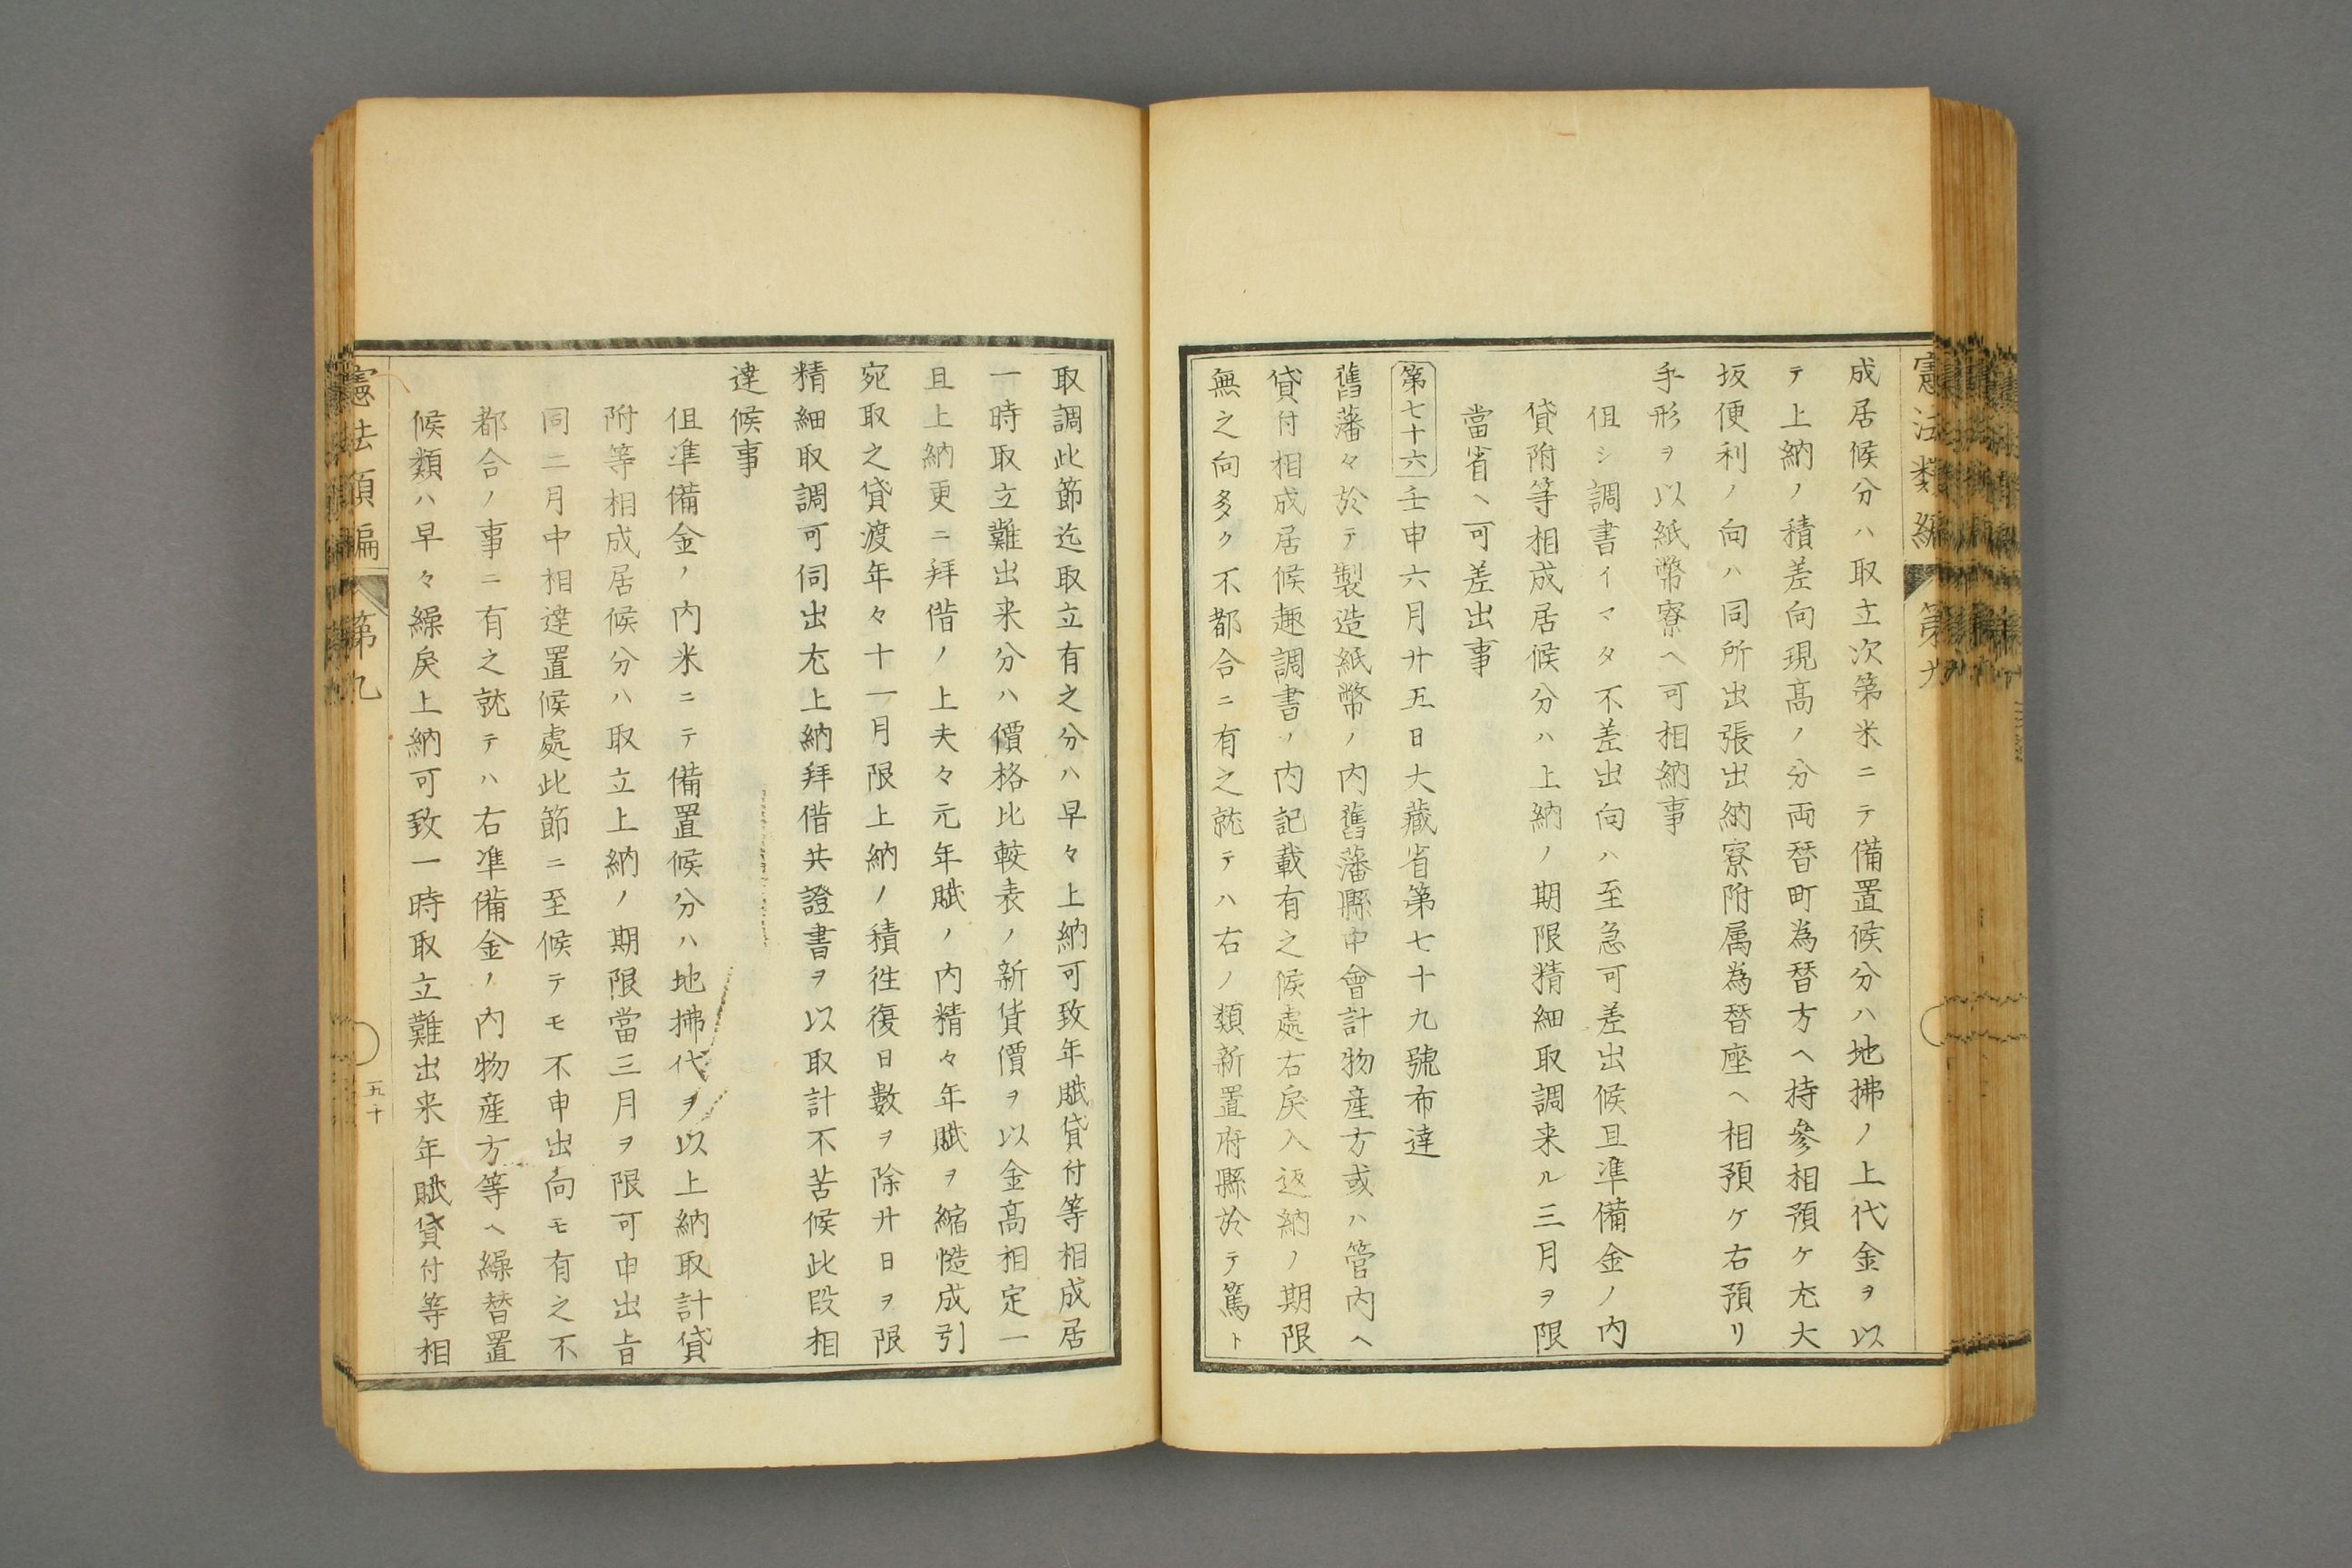 憲法類編 第九
成居候分ハ取立次第米ニテ備置候分ハ地拂ノ上代金ヲ以
テ上納ノ積差向現高ノ分両替町為替方ヘ持參相預ケ尤大
坂便利ノ向ハ同所出張出納寮附属為替座ヘ相預ケ右預リ
手形ヲ以紙幣寮ヘ可相納事
但シ調書イマタ不差出向ハ至急可差出候且凖備金ノ内
貸附等相成居候分ハ上納ノ期限精細取調来ル三月ヲ限
當省ヘ可差出事
第七十六 壬申六月廿五日大藏省第七十九號布達
舊藩々於テ製造紙幣ノ内舊藩縣中會計物産方或ハ管内ヘ
貸付相成居候趣調書ノ内記載有之候處右戻入返納ノ期限
無之向多ク不都合ニ有之就テハ右ノ類新置府縣於テ篤ト
取調此節迄取立有之分ハ早々上納可致年賦貸付等相成居
一時取立難出来分ハ價格比較表ノ新貨價ヲ以金高相定一
且上納更ニ拜借ノ上夫々元年賦ノ内精々年賦ヲ縮愭成引
宛取之貸渡年々十一月限上納ノ積徃復日數ヲ除廾日ヲ限
精細取調可伺出尤上納拜借共證書ヲ以取計不苦候此段相
達候事
但凖備金ノ内米ニテ備置候分ハ地拂代ヲ以上納取計貸
附等相成居候分ハ取立上納ノ期限當三月ヲ限可申出旨
同二月中相達置候處此節ニ至候テモ不申出向モ有之不
都合ノ事ニ有之就テハ右凖備金ノ内物産方等ヘ繰替置
候類ハ早々繰戻上納可致一時取立難出来年賦貸付等相
憲法類編 第九 五十